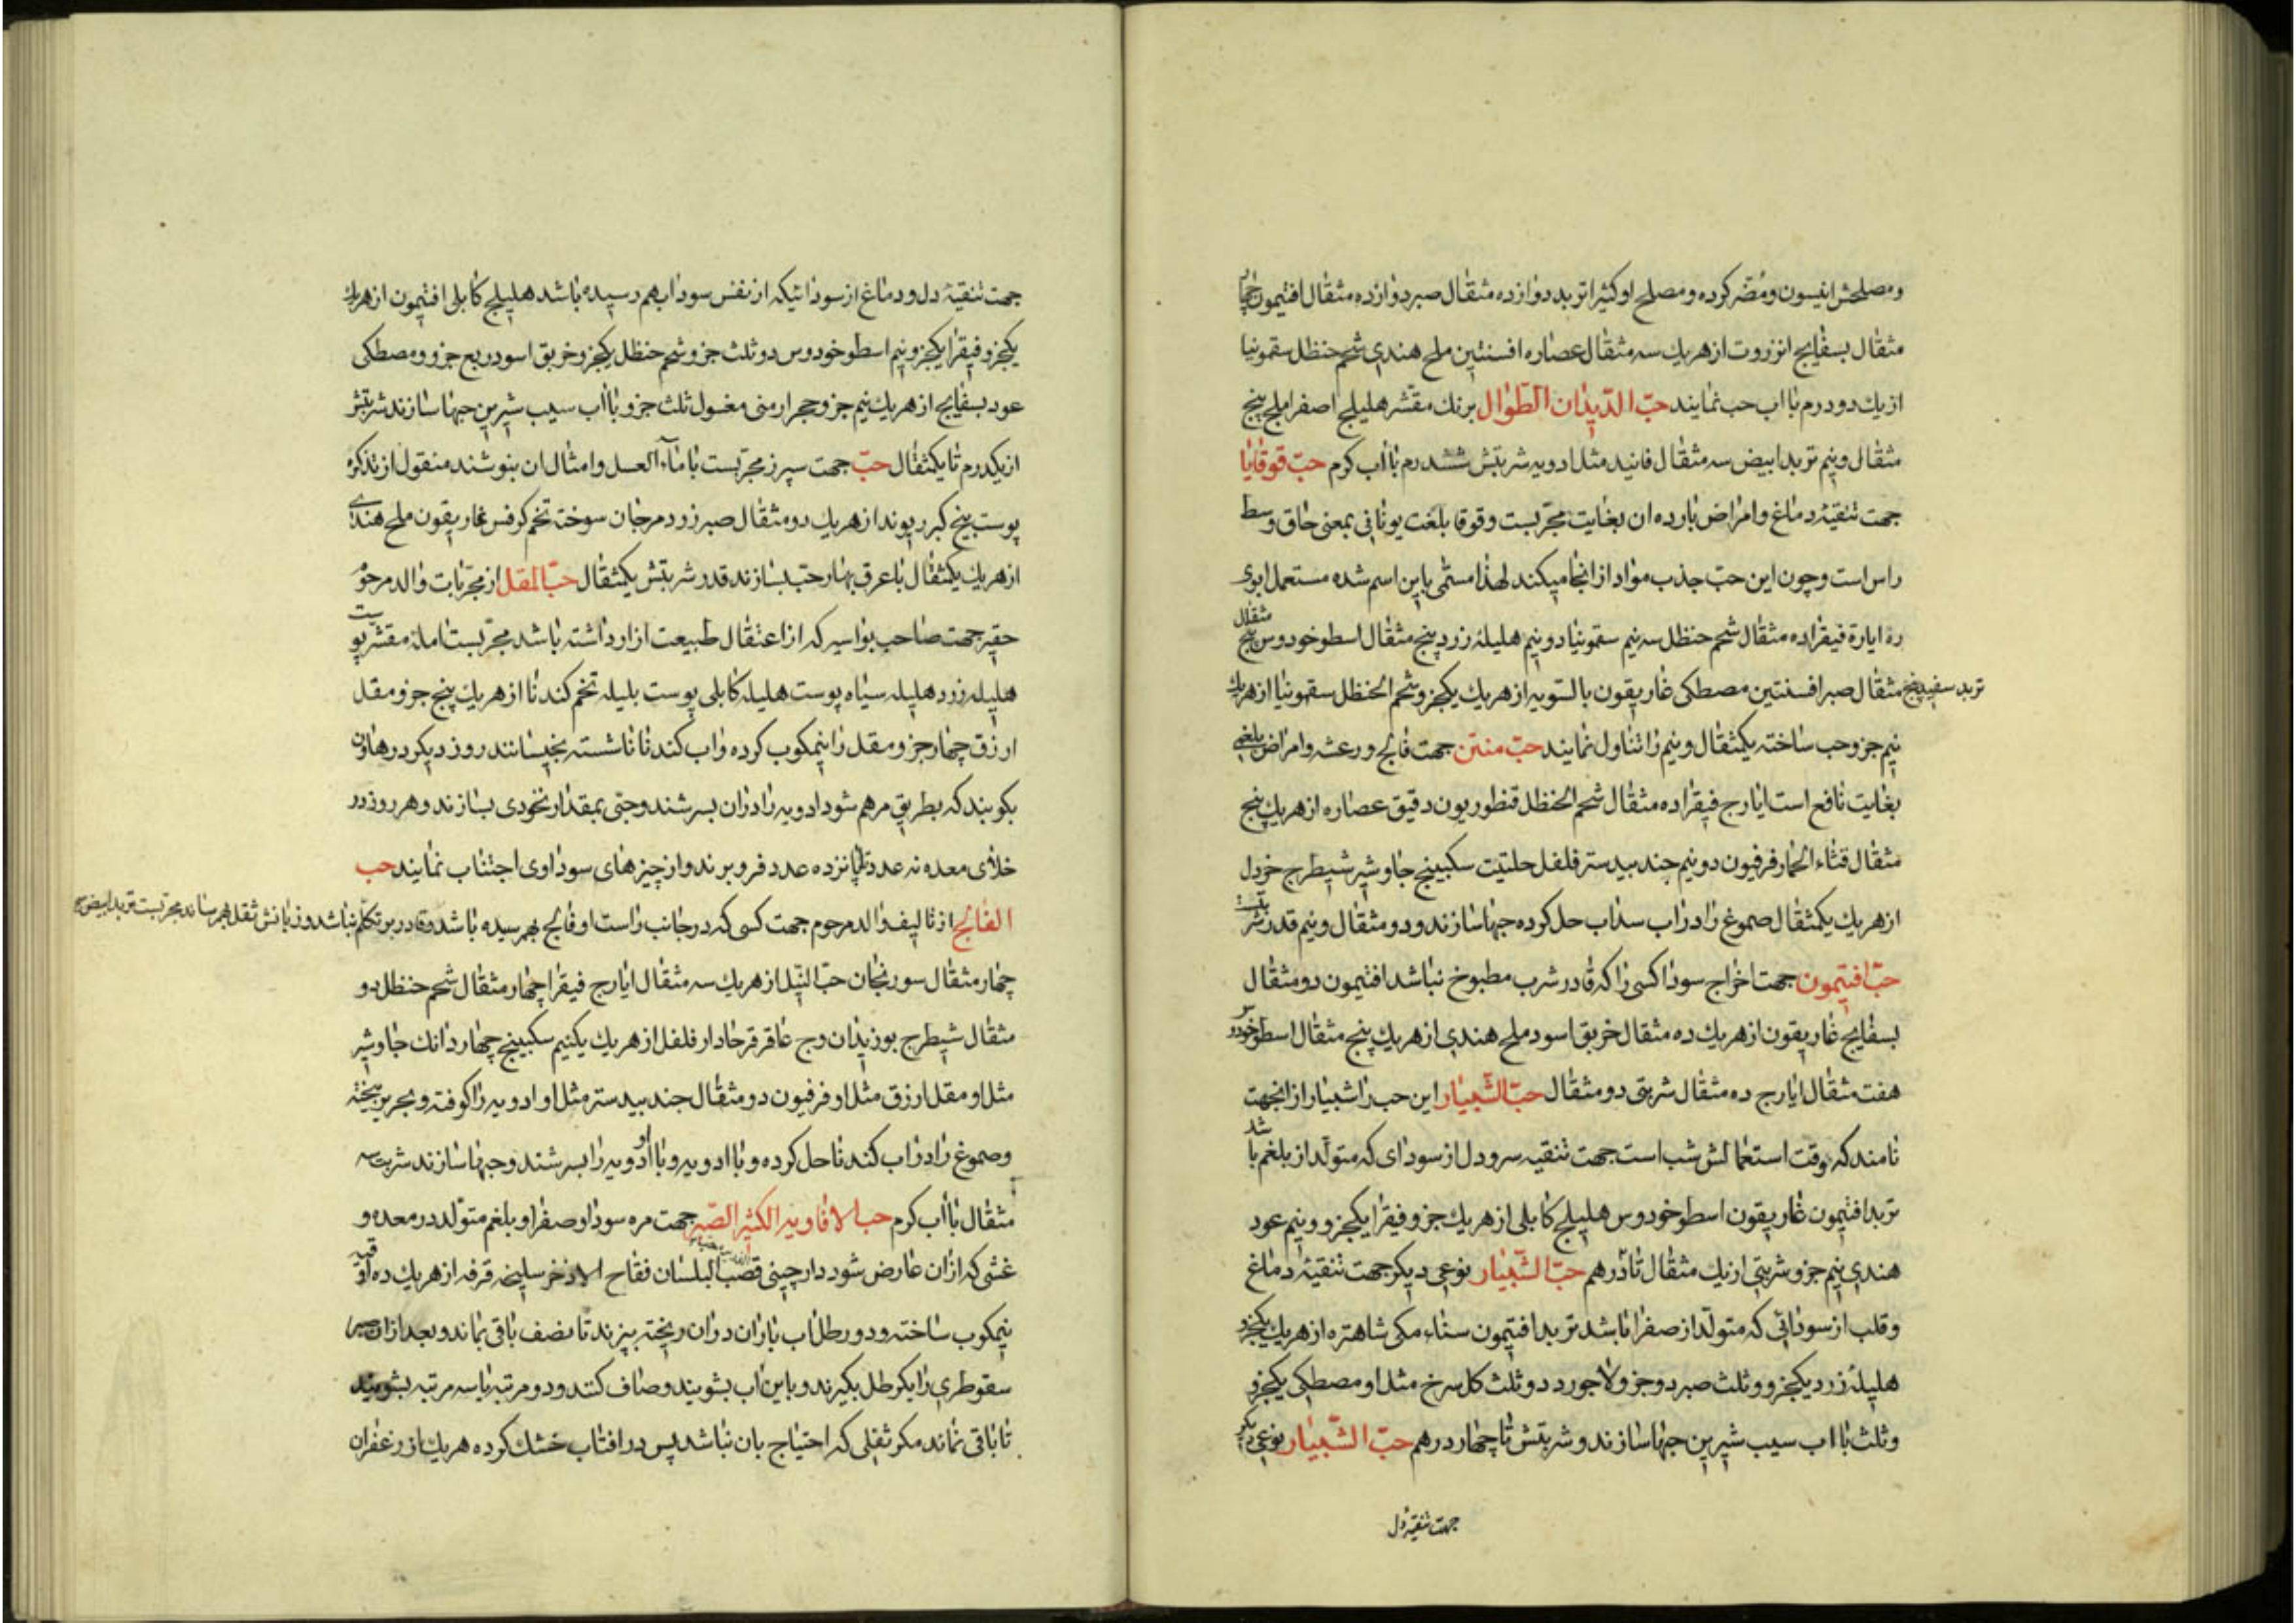 ومصلحش انیسون ومضر کرده ومصلح او کثیرا تربد دوازده مثقال صبر دوازده مثقال افتیمون چهار
مثقال بسفایج انزروت از هریك سه مثقال عصاره افسنتین ملح هندی شحم حنظل سقمونیا
از یك دو درم با اب حب نمایند حبّ الدّیدان الطّوال برنك مقشر هلیلج اصفر املج پنج
مثقال ونیم تربد ابیض سه مثقال فانید مثل ادویه شربتش ششدرم با اب کرم حبّ قوقایا
جهت تنقیۀ دماغ وامراض بارده ان بغایت مجرّبست وقوقا بلغت یونانی بمعنی حاق وسط
راس است وچون این حبّ جذب مواد از انجا میکند لهذا مسمّی باین اسم شده مستعمل ابوی
ره ایارۀ فیقرا ده مثقال شحم حنظل سه نیم سقمونیا دو نیم هلیلۀ زرد پنج مثقال اسطوخودوس پنج مثقال
تربد سفید پنج مثقال صبر افسنتین مصطکی غاریقون بالسّویه از هریك یکجزو وشحم الحنظل سقمونیا از هریك
نیم جزو حب ساخته یکمثقال ونیم را تناول نمایند حبّ منتن جهت فالج ورعشه وامراض بلغمی
بغایت نافع است ایارج فیقرا ده مثقال شحم الحنظل قنطوریون دقیق عصاره از هریك پنج
مثقال قثاء الحمار فرفیون دو نیم جند بیدستر فلفل حلتیت سکبینج جاوشیر شیطرج خردل
از هریك یکمثقال صموغ را در اب سداب حل کرده حبها سازند ودو مثقال ونیم قدر شربتست
حبّ افتیمون جهت اخراج سودا کسی را که قادر شرب مطبوخ نباشد افتیمون دو مثقال
بسفایج غاریقون از هریك ده مثقال خربق اسود ملح هندی از هریك پنج مثقال اسطوخودوس
هفت مثقال ایارج ده مثقال شربتی دو مثقال حبّ الشّبیار این حب را شبیار از انجهت
نامند که وقت استعمالش شب است جهت تنقیه سر ودل از سودای که متولّد از بلغم باشد
تربد افتیمون غاریقون اسطوخودوس هلیلج کابلی از هریك جزو فیقرا یکجزو ونیم عود
هندی نیم جزو شربتی از یك مثقال تا درهم حبّ الشّبیار نوعی دیکر جهت تنقیۀ دماغ
وقلب از سودائی که متولّد از صفرا باشد تربد افتیمون سناء مکی شاهتره از هریك یکجزو
هلیلۀ زرد یکجزو وثلث صبر دو جزو لاجورد دو ثلث کل سرخ مثل او مصطکی یکجزو
وثلث با اب سیب شیرین حبها سازند وشربتش تا چهار درهم حبّ الشّبیار نوعی دیکر
جهت تنقیۀ دل
جهت تنقیۀ دل ودماغ از سودائیکه از نفس سودا بهم رسیده باشد هلیلج کابلی افتیمون از هریك
یکجزو فیقرا یکجزو ونیم اسطوخودوس دو ثلث جزو شحم حنظل یکجزو خربق اسود ربع جزو ومصطکی
عود بسفایج از هریك نیم جزو حجر ارمنی مغسول ثلث جزو با اب سیب شیرین حبها سازند شربتش
از یکدرم تا یکمثقال حبّ جهت سپرز مجرّبست با ماء العسل وامثال ان بنوشند منقول از تذکره
پوست بیخ کبر ریوند از هریك دو مثقال صبر زرد مرجان سوخته تخم کرفس غاریقون ملح هندی
از هریك یکمثقال با عرق بهار حبّ بسازند قدر شربتش یکمثقال حبّ المقل از مجرّبات والد مرحوم
حقیر جهت صاحب بواسیر که از اعتقال طبیعت ازار داشته باشد مجرّبست امله مقشر پوست
هلیله زرد هلیله سیاه پوست هلیله کابلی پوست بلیله تخم کندنا از هریك پنج جزو مقل
ارزق چهار جزو مقل را نیمکوب کرده واب کندنا ناشسته بخیسانند روز دیکر در هاون
بکوبند که بطریق مرهم شود ادویه را دران بسرشند وحبّی بمقدار نخودی بسازند وهر روز در
خلای معده نه عدد تا پانزده عدد فرو برند واز چیزهای سوداوی اجتناب نمایند حب
الفالج از تالیف والد مرحوم جهت کسی که در جانب راست او فالج بهمرسیده باشد وقادر بر تکلّم نباشد وزبانش ثقل بهمرساند مجرّبست تربد ابیض
چهار مثقال سورنجان حبّ النّیل از هریك سه مثقال ایارج فیقرا چهار مثقال شحم حنظل دو
مثقال شیطرج بوزیدان وج عاقرقرحا دارفلفل از هریك یکنیم سکبینج چهار دانك جاوشیر
مثل او مقل ارزق مثل او فرفیون دو مثقال جند بیدستر مثل او ادویه را کوفته وبحریر بیخته
وصموغ را در اب کندنا حل کرده وبا ادویه وبا او ادویه را بسرشند وحبها سازند شربت سه
مثقال با اب کرم حب الافاویه الکثیر الصّبر جهت مره سودا وصفرا وبلغم متولد در معده و
غشی که ازان عارض شود دارچینی قصب البلسان فقاح الاذخر سلیخه قرفه از هریك ده اوقیه
نیمکوب ساخته ودو رطل اب باران دران ریخته بپزند تا نصف باقی بماند وبعد ازان صبر
سقوطری را یکرطل بکیرند وباین اب بشویند وصاف کنند ودو مرتبه یا سه مرتبه بشویند
تا باقی نماند مکر ثقلی که احتیاج بان نباشد پس در افتاب خشك کرده هریك از زعفران